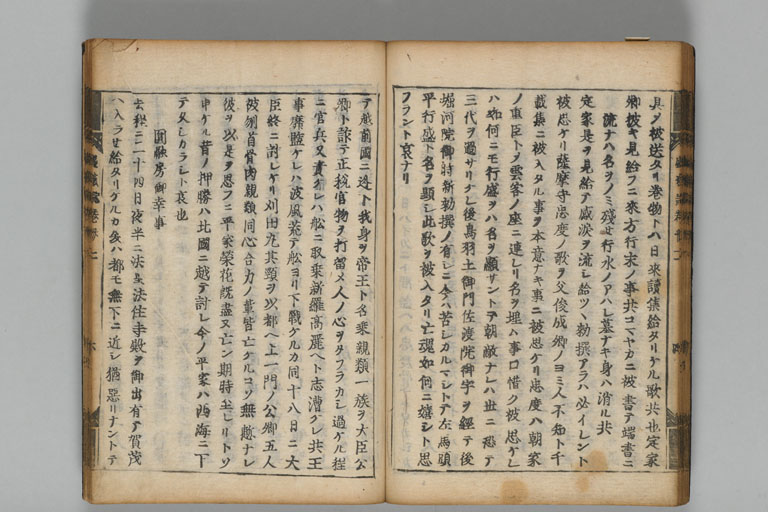 具ノ被送タリ巻物トハ日來讀集給タリケル歌共也定家
卿披キ見給フニ來方行末ノ事共コマヤカニ被書テ端書ニ
流ナハ名ヲノミ残セ行水ノアハレ墓ナキ身ハ消ル共
定家是ヲ見給テ感涙ヲ流シ給ツヽ勅撰アラハ必イレント
被思ケリ薩摩守忠度ノ歌ヲ父俊成卿ノヨミ人不知ト千
載集ニ被入タル事ヲ本意ナキ事ニ被思ケリ忠度ハ朝家
ノ重臣トメ雲客ノ座ニ連レリ名ヲ埋ハ事口惜ク被思ケレ
ハ如何ニモ行盛ヲハ名ヲ顯サントテ朝敵ナレハ世ニ恐テ
三代ヲ過サリケレ後鳥羽土御門佐渡院御宇ヲ經テ後
堀河院御時新勅撰ノ有シニ今ハ苦シカルマシトテ左馬頭
平行盛ト名ヲ顯シ此歌ヲ被入タリ亡魂如何ニ嬉シト思
フラント哀ナリ
テ越前國ニ逃ト我身ヲ帝王ト名乗親類一族ヲ大臣公
卿ト諒テ正税官物ヲ打留メ人ノ心ヲタフラカシ過ケル程
ニ官兵又責ケレハ舩ニ取乗新羅高麗ヘト志漕ケレ共王
事靡盬ケレハ波風荒テ舩ヨリ下戰ケルカ同十八日ニ大
臣終ニ討レケリ刈田丸其頸ヲ以都ヘ上一門ノ公卿五人
被刎首骨肉親類同心合力ノ輩皆亡ケルコソ無慙ナレ
彼ヲ以是ヲ思フニ平家榮花既盡又亡ン期時至レリトソ
申ケル昔ノ押勝ハ北國ニ越テ討レ今ノ平家ハ西海ニ下
テ失シカラント哀也
圓融房御幸事
去程ニ二十四日夜半ニ法皇法住寺殿ヲ御出有テ賀茂
ヘ入ラセ給タリケルカ爰ハ都モ無下ニ近シ猶惡リナントテ